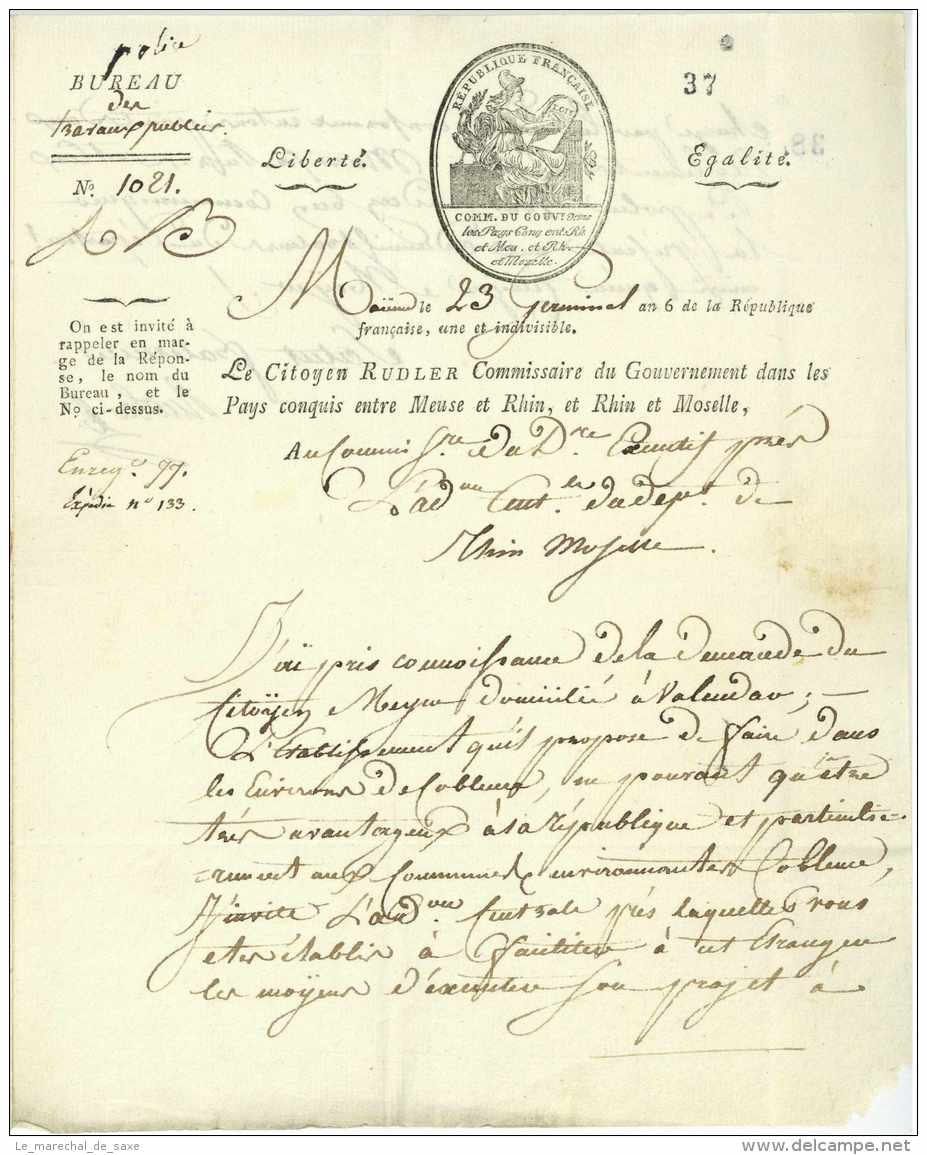 police
BUREAU
des
travaux publics.
Nº. 1021.
Liberté.
RÉPUBLIQUE FRANÇAISE
COMM. DU GOUV.t Dans
les Pays Conq ent. Rh.
et Meu. et Rh.
et Moselle.
37
38
Egalité.
On est invité à
rappeler en mar-
ge de la Répon-
se, le nom du
Bureau, et le
No ci-dessus.
Enreg.º 77.
Expédié nº 133.
le 23 Germinal an 6 de la République
française, une et indivisible.
Le Citoyen RUDLER Commissaire du Gouvernement dans les
Pays conquis entre Meuse et Rhin, et Rhin et Moselle,
Au Commiss.re du D.re Exécutif près
L'ad.on Cent.le du dep.t de
Rhin Moselle.
J'ai pris connoissance de la demande du
Citoÿen domicilié à Valendar ;
L'Etablissement qu'il propose de faire dans
les Environs de Coblence, ne pouvant qu'être
très avantageux à la République et particuliè-
rement aux Communes environnantes Coblence,
J'invite L'ad.on Centrale près laquelle vous
etes établi à faciliter à cet Etranger
les moÿens d'exécuter son projet à
Le_marechal_de_saxe
www.delcampe.net